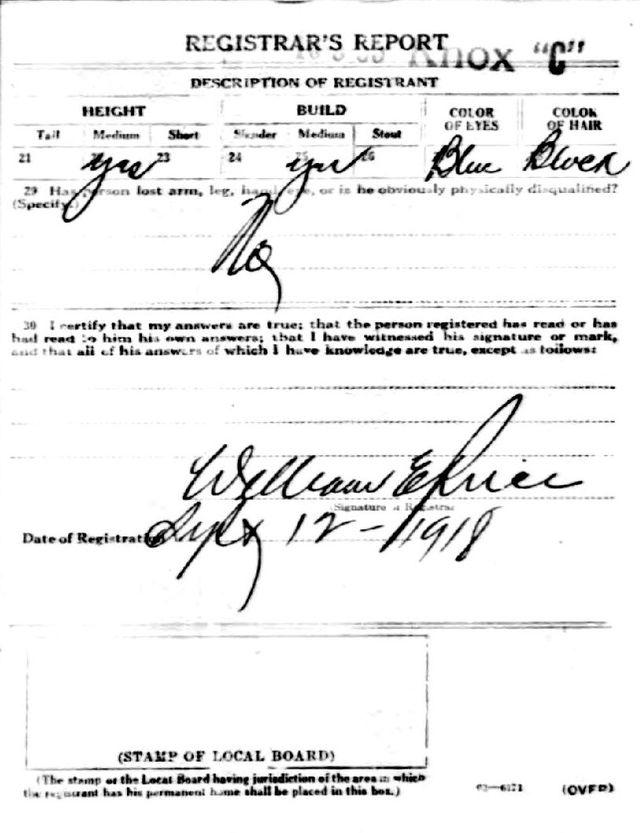 REGISTRAR'S REPORT
Knox "C"
DESCRIPTION OF REGISTRANT
HEIGHT BUILD COLOR OF EYES COLOR OF HAIR
Tall Medium Short Slender Medium Stout
21 yes 23 24 25 yes 26 Blue Black
29 Has person lost arm, leg, hand, eye, or is he obviously physically disqualified?
(Specify.)
No
30 I certify that my answers are true; that the person registered has read or has
had read to him his own answers; that I have witnessed his signature or mark,
and that all of his answers of which I have knowledge are true, except as follows:
William E Price
Signature of Registrar
Date of Registration Sept 12 - 1918
(STAMP OF LOCAL BOARD)
(The stamp of the Local Board having jurisdiction of the area in which
the registrant has his permanent home shall be placed in this box.)
03—6171 (OVER)